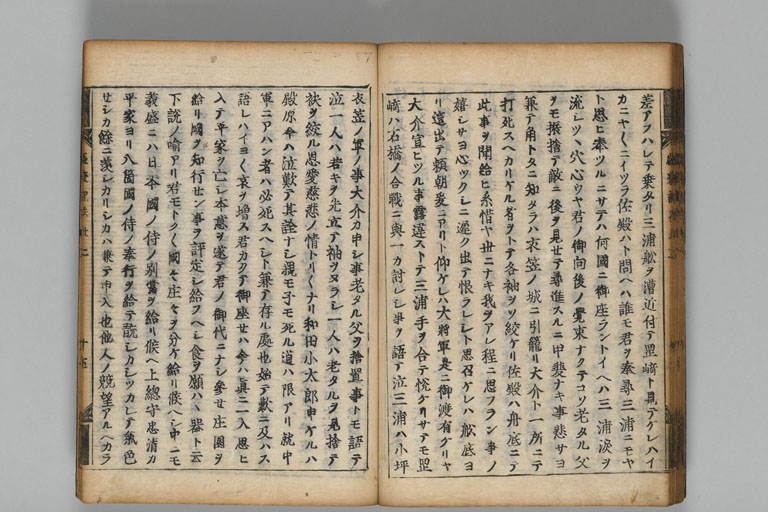 差アラハレテ乗タリ三浦舩ヲ漕近付テ罡﨑ト見テケレハイ
カニヤ〱ニイツラ佐殿ハト問ヘハ誰モ君ヲ奉尋三浦ニモヤ
ト思ヒ奉ツルニサテハ何國ニ御座ラントイヘハ三浦涙ヲ
流シツヽ穴心ウヤ君ノ御向後ノ覚束ナクテコソ老タル父
ヲモ振捨テ敵ニ後ヲ見セテ尋進スルニ甲斐ナキ事悲サヨ
兼テ角トタニ知タラハ衣笠ノ城ニ引籠リ大介ト一所ニテ
打死スヘカリケル者ヲトテ各袖ヲソ絞ケリ佐殿ハ舟底ニテ
此事ヲ聞給ヒ糸惜ヤ世ニナキ我ヲアレ程ニ思フラン事ノ
嬉シサヨ心ツクシニ遅ク出テ恨ラレシト思召ケレハ舩底ヨ
リ這出テ頼朝爰ニアリト仰ケレハ大将軍是ニ御渡有ケリヤ
大介宣ヒツル事露違ストテ三浦手ヲ合テ悦ケリサテモ罡
﨑ハ石橋ノ合戦ニ與一カ討レシ事ヲ語テ泣三浦ハ小坪
衣笠ノ軍ノ事大介カ申シ事老タル父ヲ捨置事トモ語テ
泣一人ハ若キヲ先立テ袖ヲヌラシ一人ハ老タルヲ見捨テ
袂ヲ絞ル恩愛慈悲ノ情トリ〱ナリ和田小太郎申ケルハ
殿原今ハ泣歎テ其詮ナシ親モ子モ死ル道ハ限アリ就中
軍ニアハン者ハ必死スヘシト兼テ存ル處也始テ歎ニ及ハス
語レハイヨ〱哀ヲ増ス君カクテ御座セハ今ハ真ニ一入思ヒ
入テ平家ヲ亡シ本意ヲ遂テ君ノ御代ニナシ参セ庄園ヲ
給リ國ヲ知行セン事ヲ評定シ給フヘシ食ヲ願ハヽ器ト云
下説ノ喩アリ君モトク〱國々庄々ヲ分ケ給リ候ヘシ中ニモ
義盛ニハ日本國ノ侍ノ別當ヲ給リ候ヘ上総守忠清カ
平家ヨリ八箇國ノ侍ノ奉行ヲ給テ翫レカシツカレテ氣色
サシカ餘ニ羨シカリシカハ兼テ申入也他人ノ競望アルヘカラ